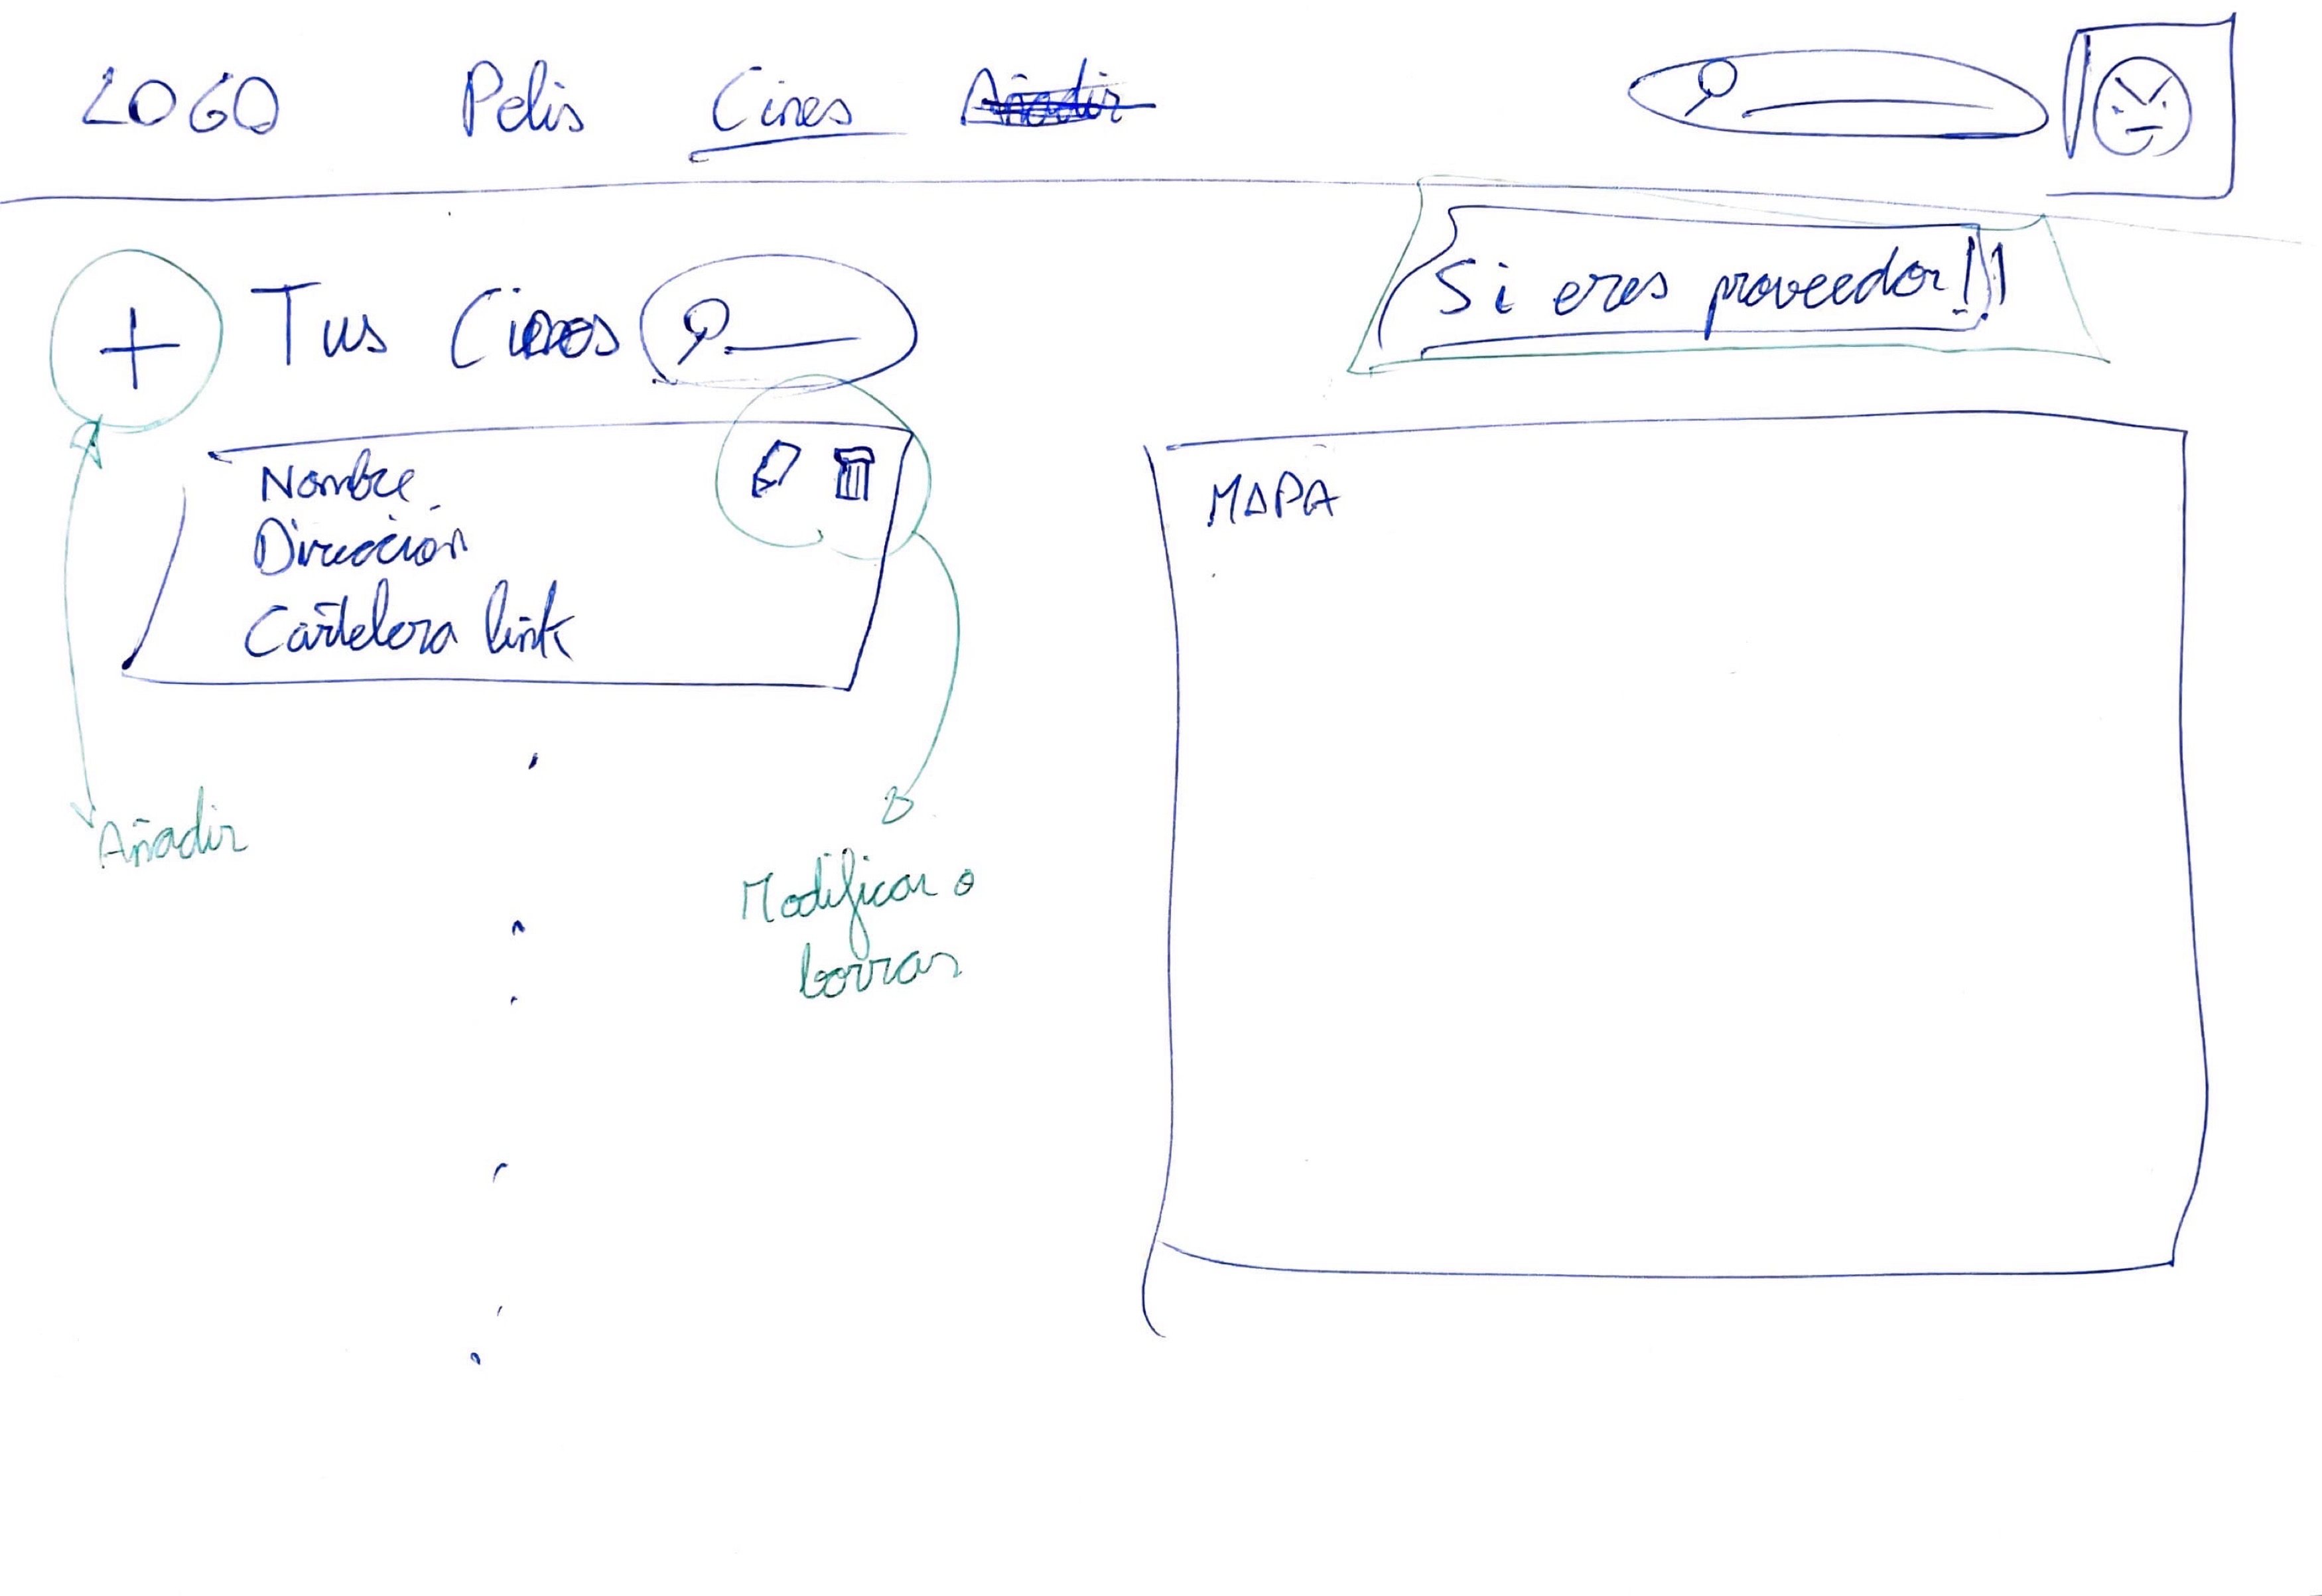 LOGO Pelis Cines Añadir
Si eres proveedor!!
+ Tus Cines
Nombre
Dirección
Cartelera link
MAPA
Añadir
Modificar o
borrar